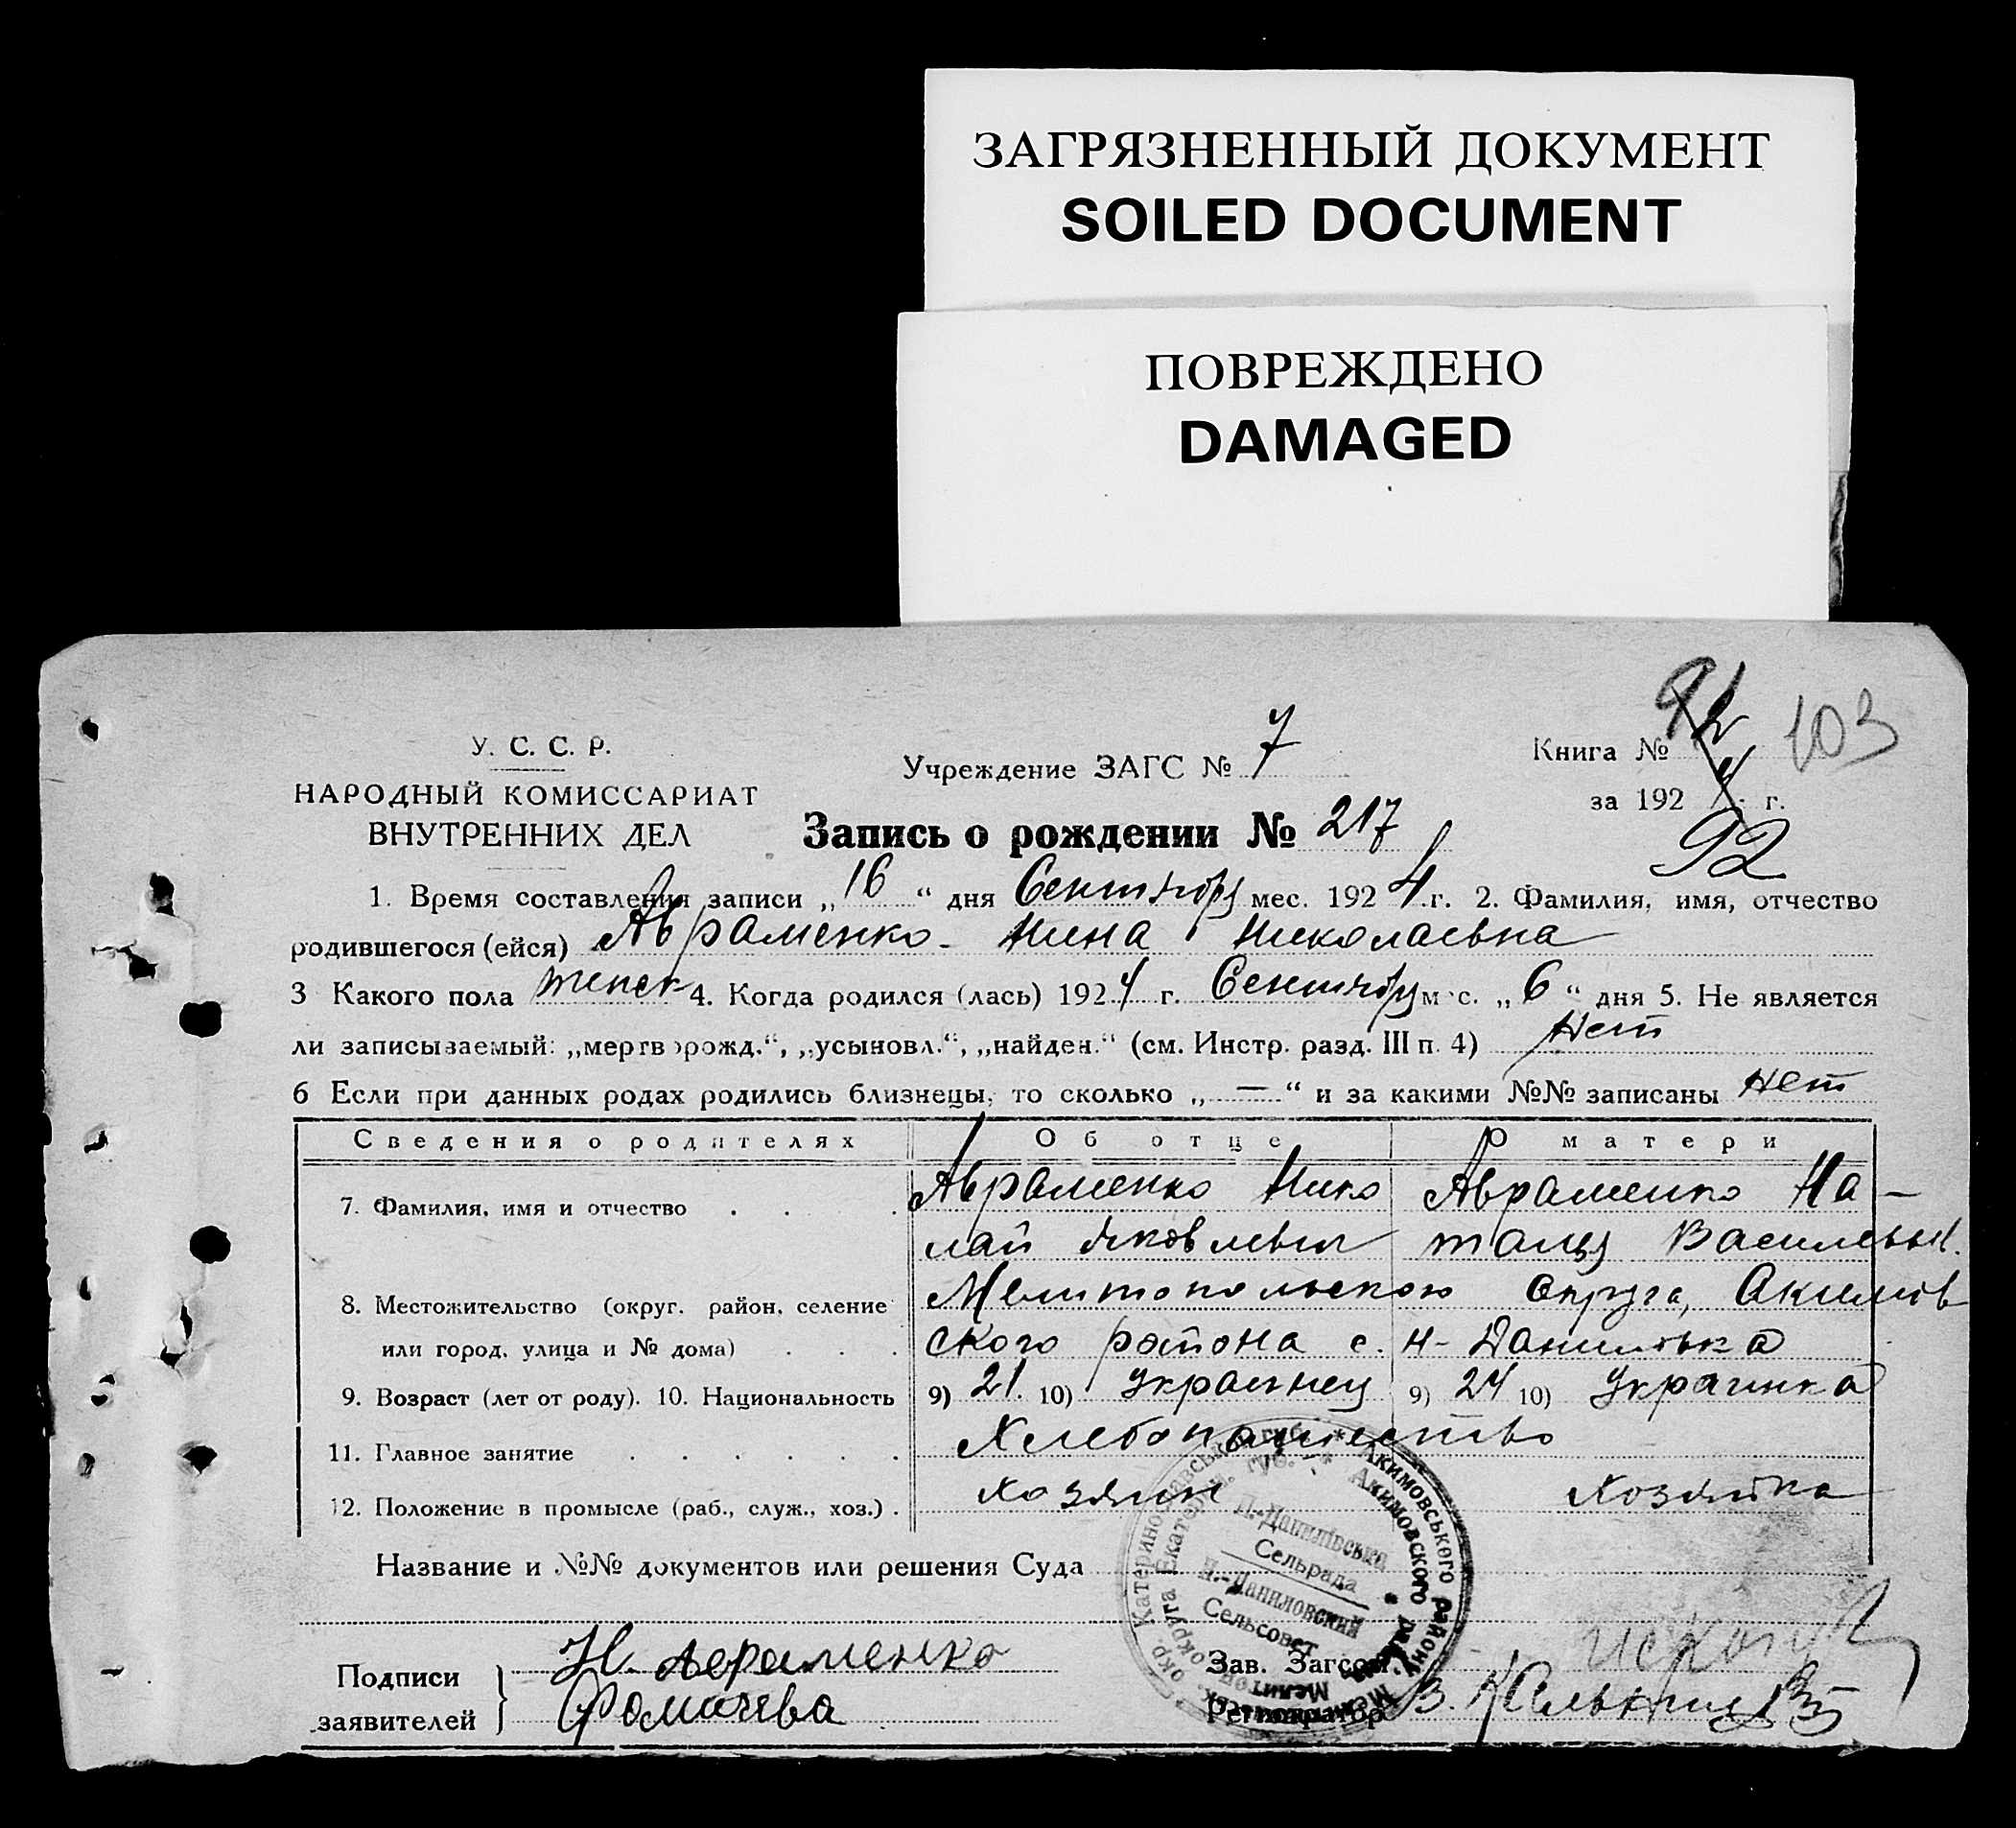 ЗАГРЯЗНЕННЫЙ ДОКУМЕНТ
SOILED DOCUMENT
ПОВРЕЖДЕНО
DAMAGED
103
У. С. С. Р.
НАРОДНЫЙ КОМИССАРИАТ
ВНУТРЕННИХ ДЕЛ
Учреждение ЗАГС № 7
Книга №
за 192 4 г.
92
Запись о рождении № 217
1. Время составления записи „16“ дня Сентября мес. 1924 г. 2. Фамилия, имя, отчество
родившегося (ейся) Авраменко Нина Николаевна
3 Какого пола женск 4. Когда родился (лась) 1924 г. Сентября мес. „6“ дня 5. Не является
ли записываемый: „мертворожд.“, „усыновл.“, „найден.“ (см. Инстр. разд. III п. 4) Нет
6 Если при данных родах родились близнецы, то сколько „—“ и за какими №№ записаны нет
Сведения о родителях Об отце О матери
7. Фамилия, имя и отчество Авраменко Нико Авраменко На-
лай Яковлевич талия Васильевн.
8. Местожительство (округ. район, селение Мелитопольского Округа, Акимов
или город, улица и № дома) ского района с. Н-Даниловка
9. Возраст (лет от роду). 10. Национальность 9) 21. 10) Украинец 9) 24 10) Украинка
11. Главное занятие Хлебопашество
12. Положение в промысле (раб., служ., хоз.) Хозяин Хозяйка
Название и №№ документов или решения Суда
Катеринославської губ. * Акимовського району Мелітоп. окр.
Екатер. губ. * Акимовского района Мелитоп. округа
Н.-Данилівська
Сельрада
Н.-Даниловский
Сельсовет
Подписи
заявителей
Н. Авраменко
Фомичева
Зав. Загсом
Регистратор